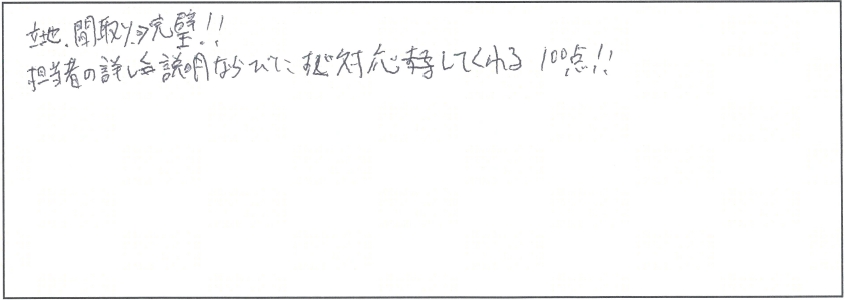 立地、間取り⇒完璧!!
担当者の詳しい説明ならびに、すぐ対応してくれる 100点!!